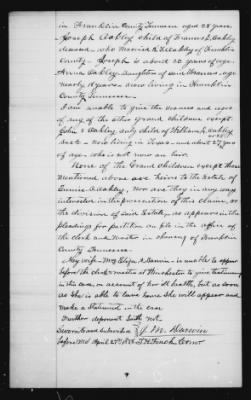 in Franklin County Tennessee aged 28 years.
Joseph Oakley child of Francis E. Oakley
deceased - who married R. Oakley of Franklin
County - Joseph is about 22 years of age
Anna Oakley daughter of said Thomas - age
nearly 18 years - now living in Franklin
County Tennessee.
I am unable to give the names and ages
of any of the other grand children except
John S Oakley, only child of William L. Oakley
decd - now living in Texas - and about 27 years
of age - who is not now an heir.
None of the Grand children except those
mentioned above are heirs to the estate of
A. Oakley, nor are they in any way
interested in the prosecution of this claim, or
the division of said Estate, as appears in the
pleadings for partition on file in the office of
the clerk and Master in chancery of Franklin
County Tennessee.
My wife - Mrs Eliza A Darwin - is unable to appear
before the clerk & master at Winchester to give testimony
in this case, on account of her ill health, but as soon
as she is able to leave home she will appear and
make a statement in the case
Further deponent saith not
Sworn to and subscribed J. M. Darwin
before me April 27th